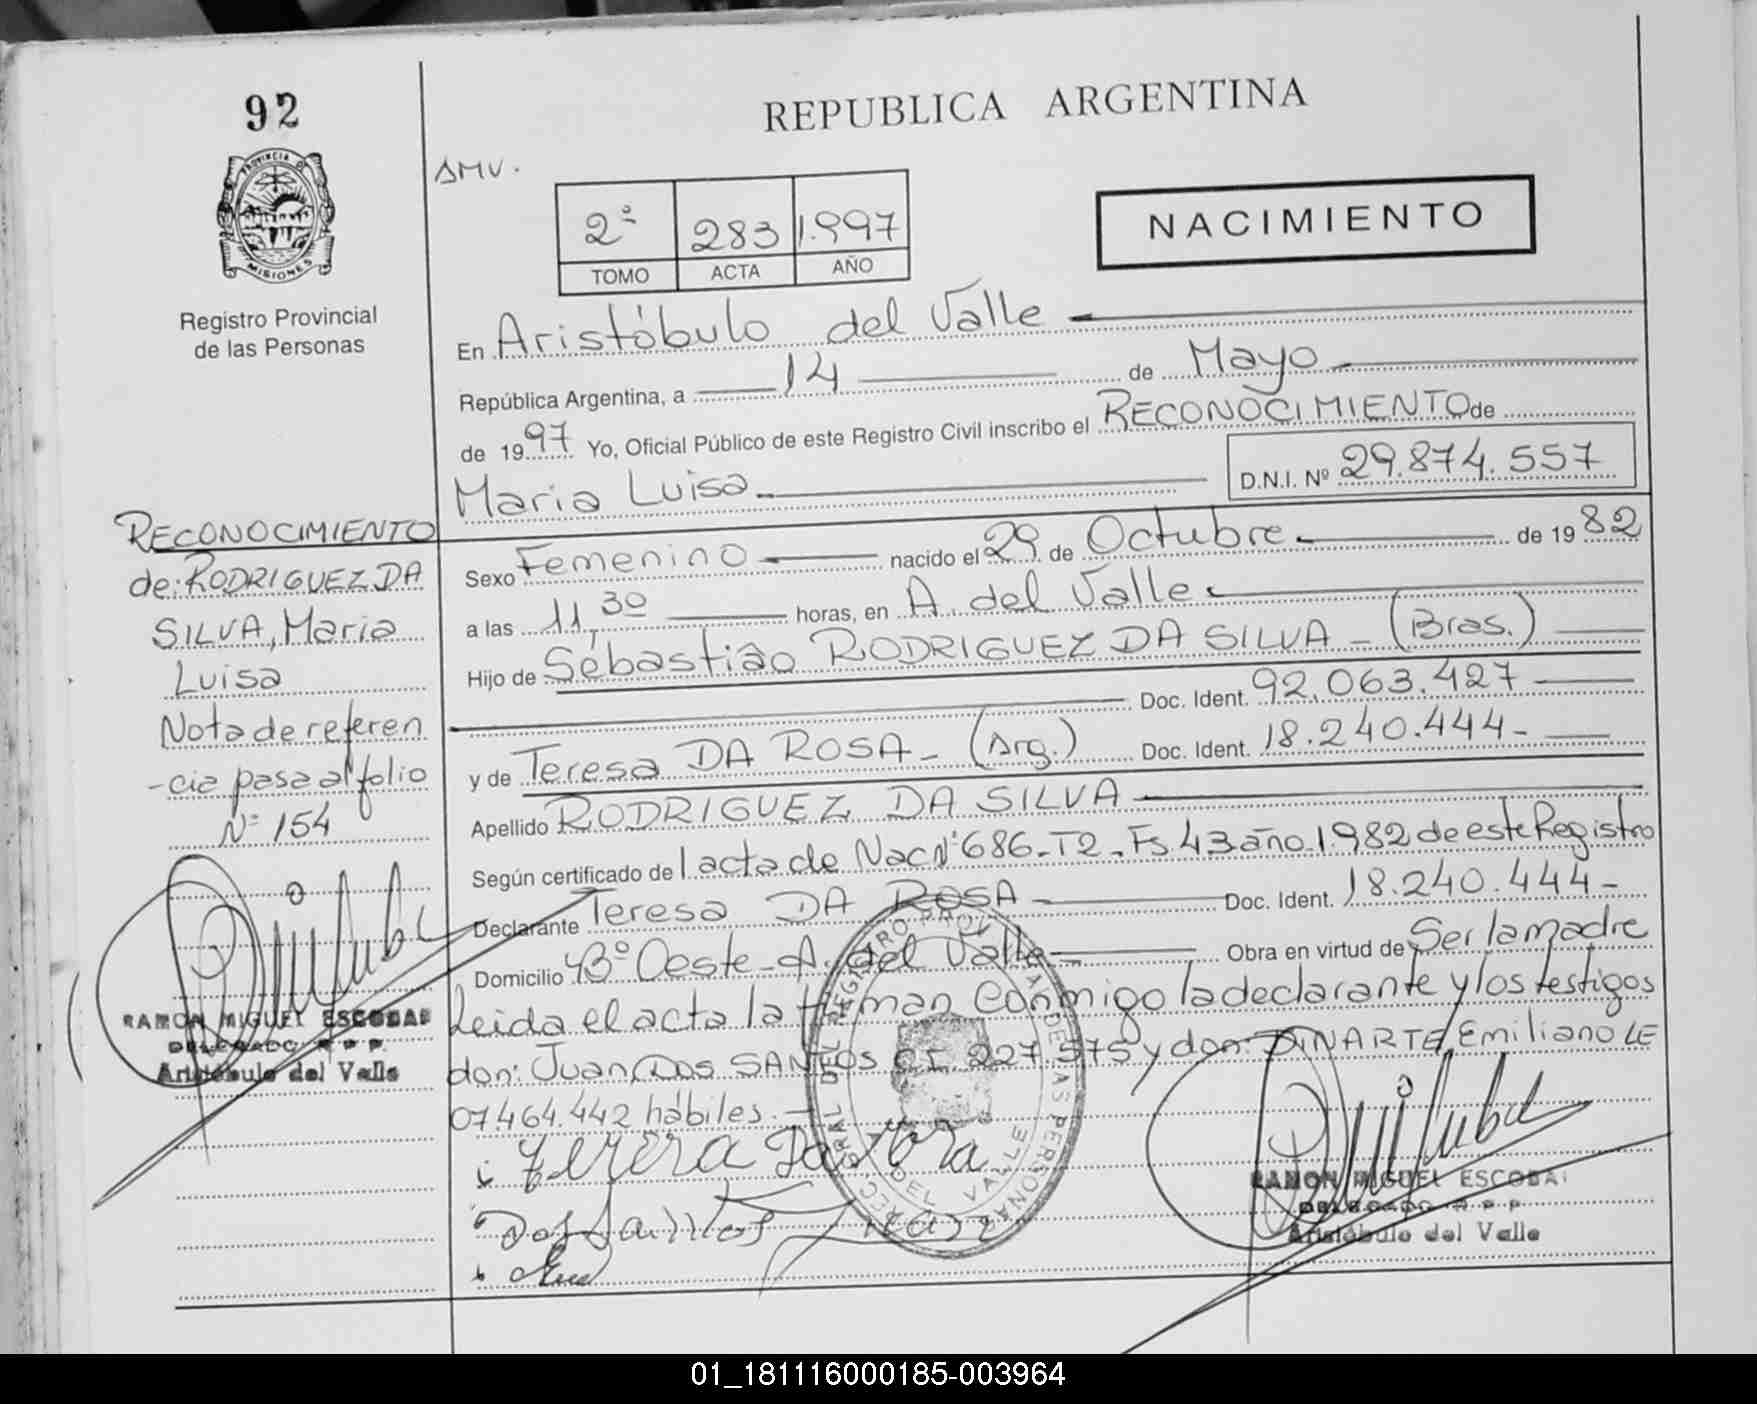 92
REPUBLICA ARGENTINA
PROVINCIA D
MISIONES
Registro Provincial
de las Personas
AMV.
2º 283 1.997
TOMO ACTA AÑO
NACIMIENTO
En Aristóbulo del Valle
República Argentina, a 14 de Mayo
de 1997 Yo, Oficial Público de este Registro Civil inscribo el RECONOCIMIENTO de
Maria Luisa D.N.I. Nº 29.874.557
Sexo Femenino nacido el 29 de Octubre de 1982
a las 11,30 horas, en A. del Valle
Hijo de Sebastião RODRIGUEZ DA SILVA - (Bras.)
Doc. Ident. 92.063.427
y de Teresa DA ROSA - (Arg.) Doc. Ident. 18.240.444-
Apellido RODRIGUEZ DA SILVA
Según certificado de l acta de Nac Nº 686-T2-Fs 43 año 1.982 de este Registro
Declarante Teresa DA ROSA Doc. Ident. 18.240.444-
Domicilio Bº Oeste - A. del Valle Obra en virtud de Ser la madre
Leida el acta la firman conmigo la declarante y los testigos
don: Juan Dos SANTOS C.I. 227.575 y don: DINARTE Emiliano LE
07.464.442 hábiles.-
RECONOCIMIENTO
de: RODRIGUEZ DA
SILVA, Maria
Luisa
Nota de referen
-cia pasa al folio
Nº 154
RAMON MIGUEL ESCOBAR
DELEGADO R P P
Aristóbulo del Valle
DEL VALLE
RAMON MIGUEL ESCOBA
DELEGADO R P P
Aristóbulo del Valle
01_181116000185-003964